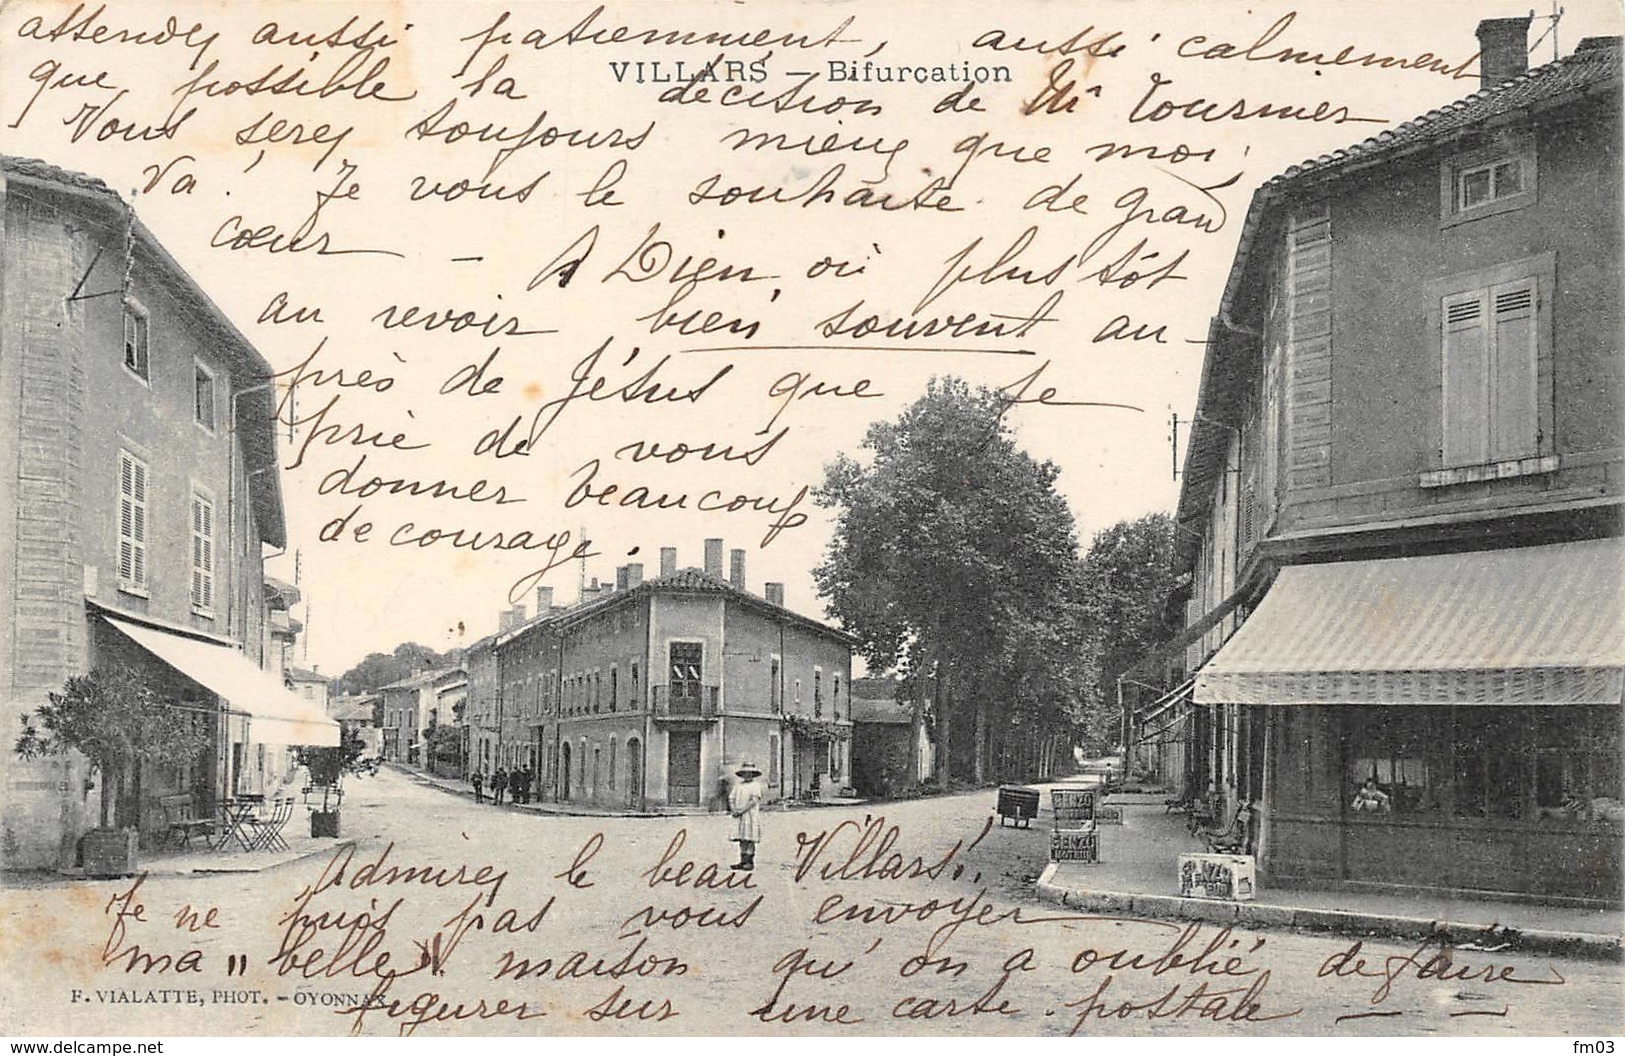 attendez aussi patiemment, aussi calmement
VILLARS – Bifurcation
que possible la décision de Mr Tournier
Vous serez toujours mieux que moi
va! Je vous le souhaite de grand
cœur – A Dieu, où plus tôt
au revoir bien souvent au-
près de Jésus que je
prie de vous
donner beaucoup
de courage.
BENZO
BENZO
MOTEUR
Admirez le beau Villars!.
Je ne puis pas vous envoyer
ma "belle" maison qu'on a oublié de faire
F. VIALATTE, PHOT. – OYONNAX
figurer sur une carte postale – –
fm03
www.delcampe.net